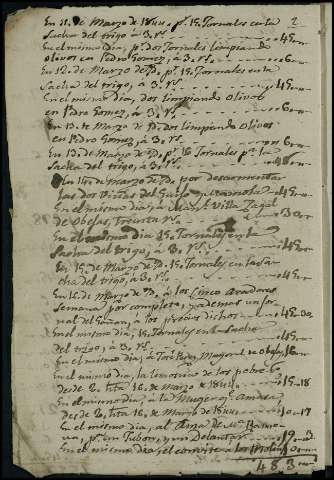 En 11. de Marzo de 1844. pr. 15. Jornales en la 2
Sacha del trigo à 3. rs. 45
En el mismo dia, pr. dos Jornales limpiando
olivos en Pedro Gomez, à 3. rs. 6
En 12. de Marzo de Yd. pr. 15. Jornales en la
Sacha del trigo, à 3. rs. 45
En el mismo dia, dos limpiando olivos
en Pedro Gomez, à 3. rs. 6
En 13. de Marzo de Yd. dos limpiando olivos
en Pedro Gomez, à 3. rs. 6
En 13. de Marzo de Yd. pr. 16 Jornales pr. la
Sacha del trigo, à 3. rs. 48
En 14. de Marzo de Yd. por desarmentar
las dos Viñas del 45
En el mismo dia, à Man.l Villa Zagal
de Obejas, treinta rs. 30
En el mismo dia 15. Jornales en la
Sacha del trigo, à 3. rs. 45
En 15. de Marzo de Yd. 15. Jornales en la Sa-
cha del trigo, à 3. rs. 45
En 16. de Marzo de Yd. à los Cinco Aradores
Semana por completo, y ademas un jor-
nal del Gañan, à los precios dichos 45-30
En el mismo dia, 15. Jornales en la Sacha
del trigo, à 3. rs. 45
En el mismo dia, à
En el mismo dia, la limosna de los pobres
desde 2. hta 16. de Marzo de 1844 15-18
En el mismo dia, à la Muger de Andres
desde 2. hta 16. de Marzo de 1844 10-17
En el mismo dia, al Ama de
pr. un Jubon, y un Delantar 19
En el mismo dia, el
483